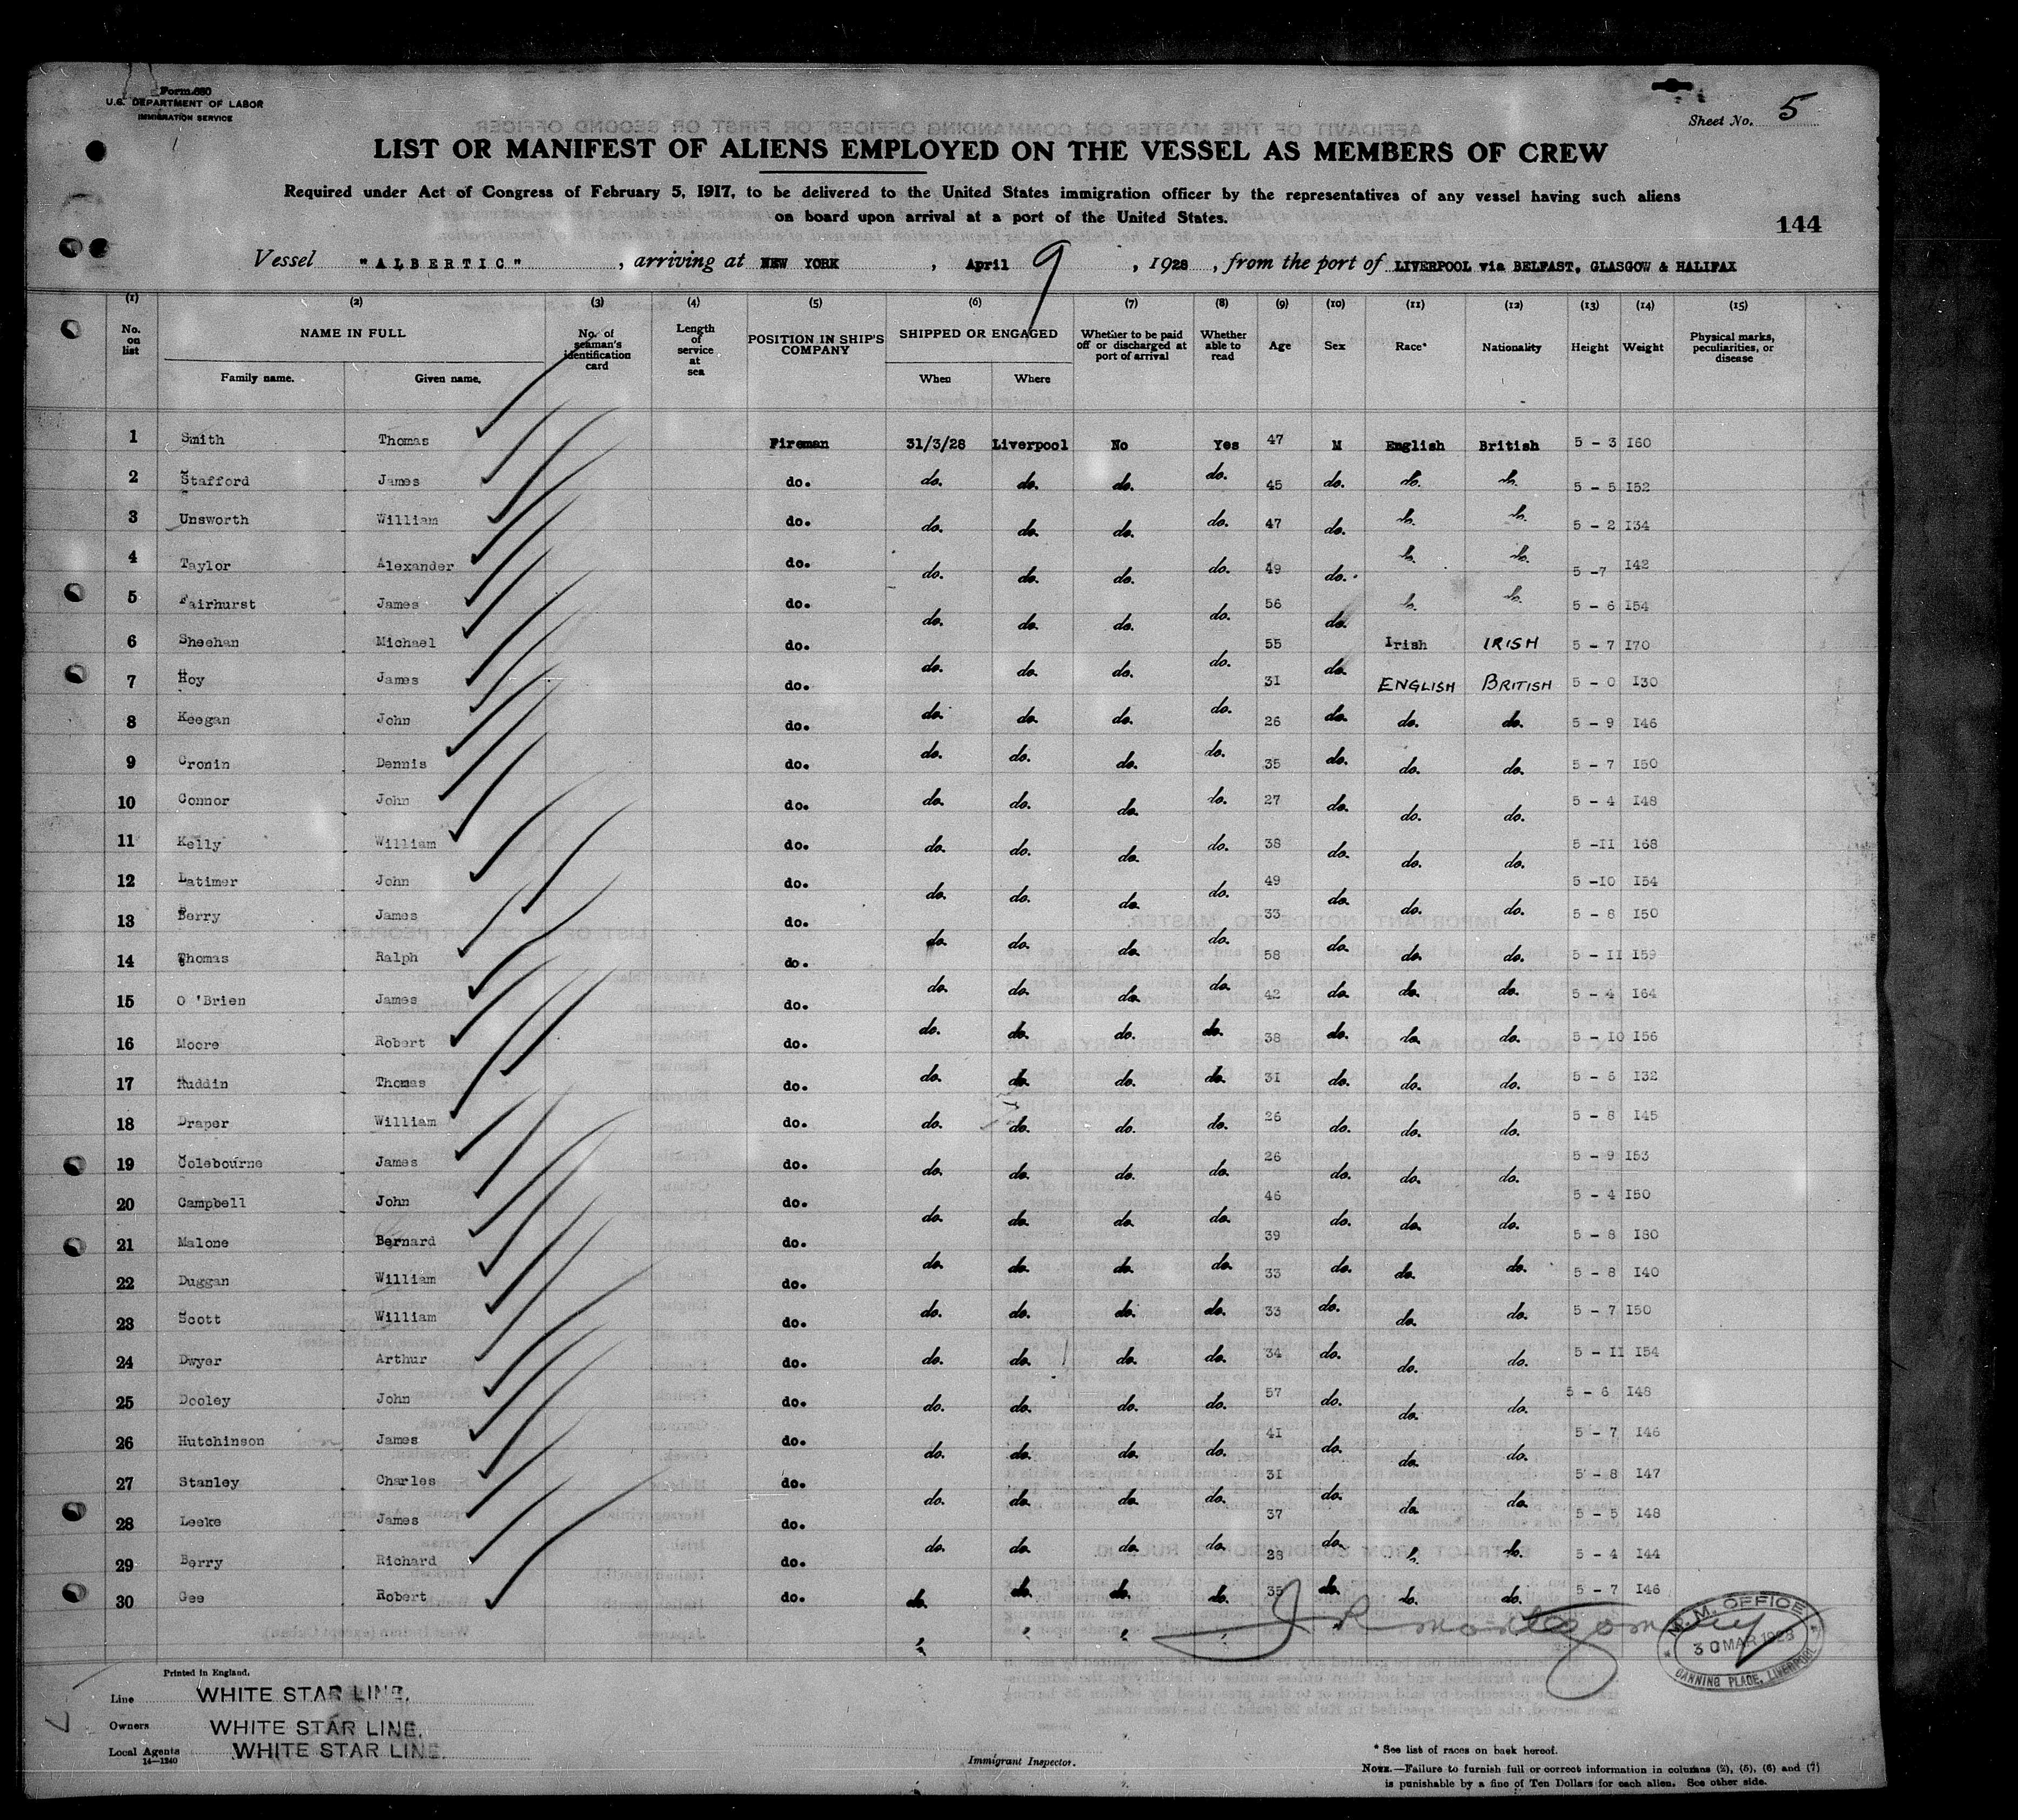 Form 680
U.S. DEPARTMENT OF LABOR
IMMIGRATION SERVICE
Sheet No. 5
LIST OR MANIFEST OF ALIENS EMPLOYED ON THE VESSEL AS MEMBERS OF CREW
Required under Act of Congress of February 5, 1917, to be delivered to the United States immigration officer by the representatives of any vessel having such aliens
on board upon arrival at a port of the United States.
144
Vessel "ALBERTIC", arriving at NEW YORK, April 9, 1928, from the port of LIVERPOOL via BELFAST, GLASGOW & HALIFAX
(1) (2) (3) (4) (5) (6) (7) (8) (9) (10) (11) (12) (13) (14) (15)
No. on list NAME IN FULL Family name. Given name. No. of seaman's identification card Length of service at sea POSITION IN SHIP'S COMPANY SHIPPED OR ENGAGED When Where Whether to be paid off or discharged at port of arrival Whether able to read Age Sex Race* Nationality Height Weight Physical marks, peculiarities, or disease
1 Smith Thomas Fireman 31/3/28 Liverpool No Yes 47 M English British 5 - 3 160
2 Stafford James do. do. do. do. do. 45 do. do. do. 5 - 5 152
3 Unsworth William do. do. do. do. do. 47 do. do. do. 5 - 2 134
4 Taylor Alexander do. do. do. do. do. 49 do. do. do. 5 -7 142
5 Fairhurst James do. do. do. do. do. 56 do. do. do. 5 - 6 154
6 Sheehan Michael do. do. do. do. do. 55 do. Irish IRISH 5 - 7 170
7 Hoy James do. do. do. do. do. 31 do. ENGLISH BRITISH 5 - 0 130
8 Keegan John do. do. do. do. do. 26 do. do. do. 5 - 9 146
9 Cronin Dennis do. do. do. do. do. 35 do. do. do. 5 - 7 150
10 Connor John do. do. do. do. do. 27 do. do. do. 5 - 4 148
11 Kelly William do. do. do. do. do. 38 do. do. do. 5 -11 168
12 Latimer John do. do. do. do. do. 49 do. do. do. 5 -10 154
13 Berry James do. do. do. do. do. 33 do. do. do. 5 - 8 150
14 Thomas Ralph do. do. do. do. do. 58 do. do. do. 5 - 11 159
15 O'Brien James do. do. do. do. do. 42 do. do. do. 5 - 4 164
16 Moore Robert do. do. do. do. do. 38 do. do. do. 5 - 10 156
17 Ruddin Thomas do. do. do. do. do. 31 do. do. do. 5 - 6 132
18 Draper William do. do. do. do. do. 26 do. do. do. 5 - 8 145
19 Colebourne James do. do. do. do. do. 26 do. do. do. 5 - 9 153
20 Campbell John do. do. do. do. do. 46 do. do. do. 5 - 4 150
21 Malone Bernard do. do. do. do. do. 39 do. do. do. 5 - 8 180
22 Duggan William do. do. do. do. do. 33 do. do. do. 5 - 8 140
23 Scott William do. do. do. do. do. 33 do. do. do. 5 - 7 150
24 Dwyer Arthur do. do. do. do. do. 34 do. do. do. 5 - 11 154
25 Dooley John do. do. do. do. do. 57 do. do. do. 5 - 6 148
26 Hutchinson James do. do. do. do. do. 41 do. do. do. 5 - 7 146
27 Stanley Charles do. do. do. do. do. 31 do. do. do. 5 - 8 147
28 Leeke James do. do. do. do. do. 37 do. do. do. 5 - 5 148
29 Berry Richard do. do. do. do. do. 28 do. do. do. 5 - 4 144
30 Gee Robert do. do. do. do. do. 35 do. do. do. 5 - 7 146
J R Montgomery
M.M. OFFICE
30 MAR 1928
CANNING PLACE, LIVERPOOL
Printed in England.
Line WHITE STAR LINE.
Owners WHITE STAR LINE.
Local Agents WHITE STAR LINE.
14—1240
Immigrant Inspector.
* See list of races on back hereof.
NOTE.—Failure to furnish full or correct information in columns (2), (5), (6) and (7)
is punishable by a fine of Ten Dollars for each alien. See other side.